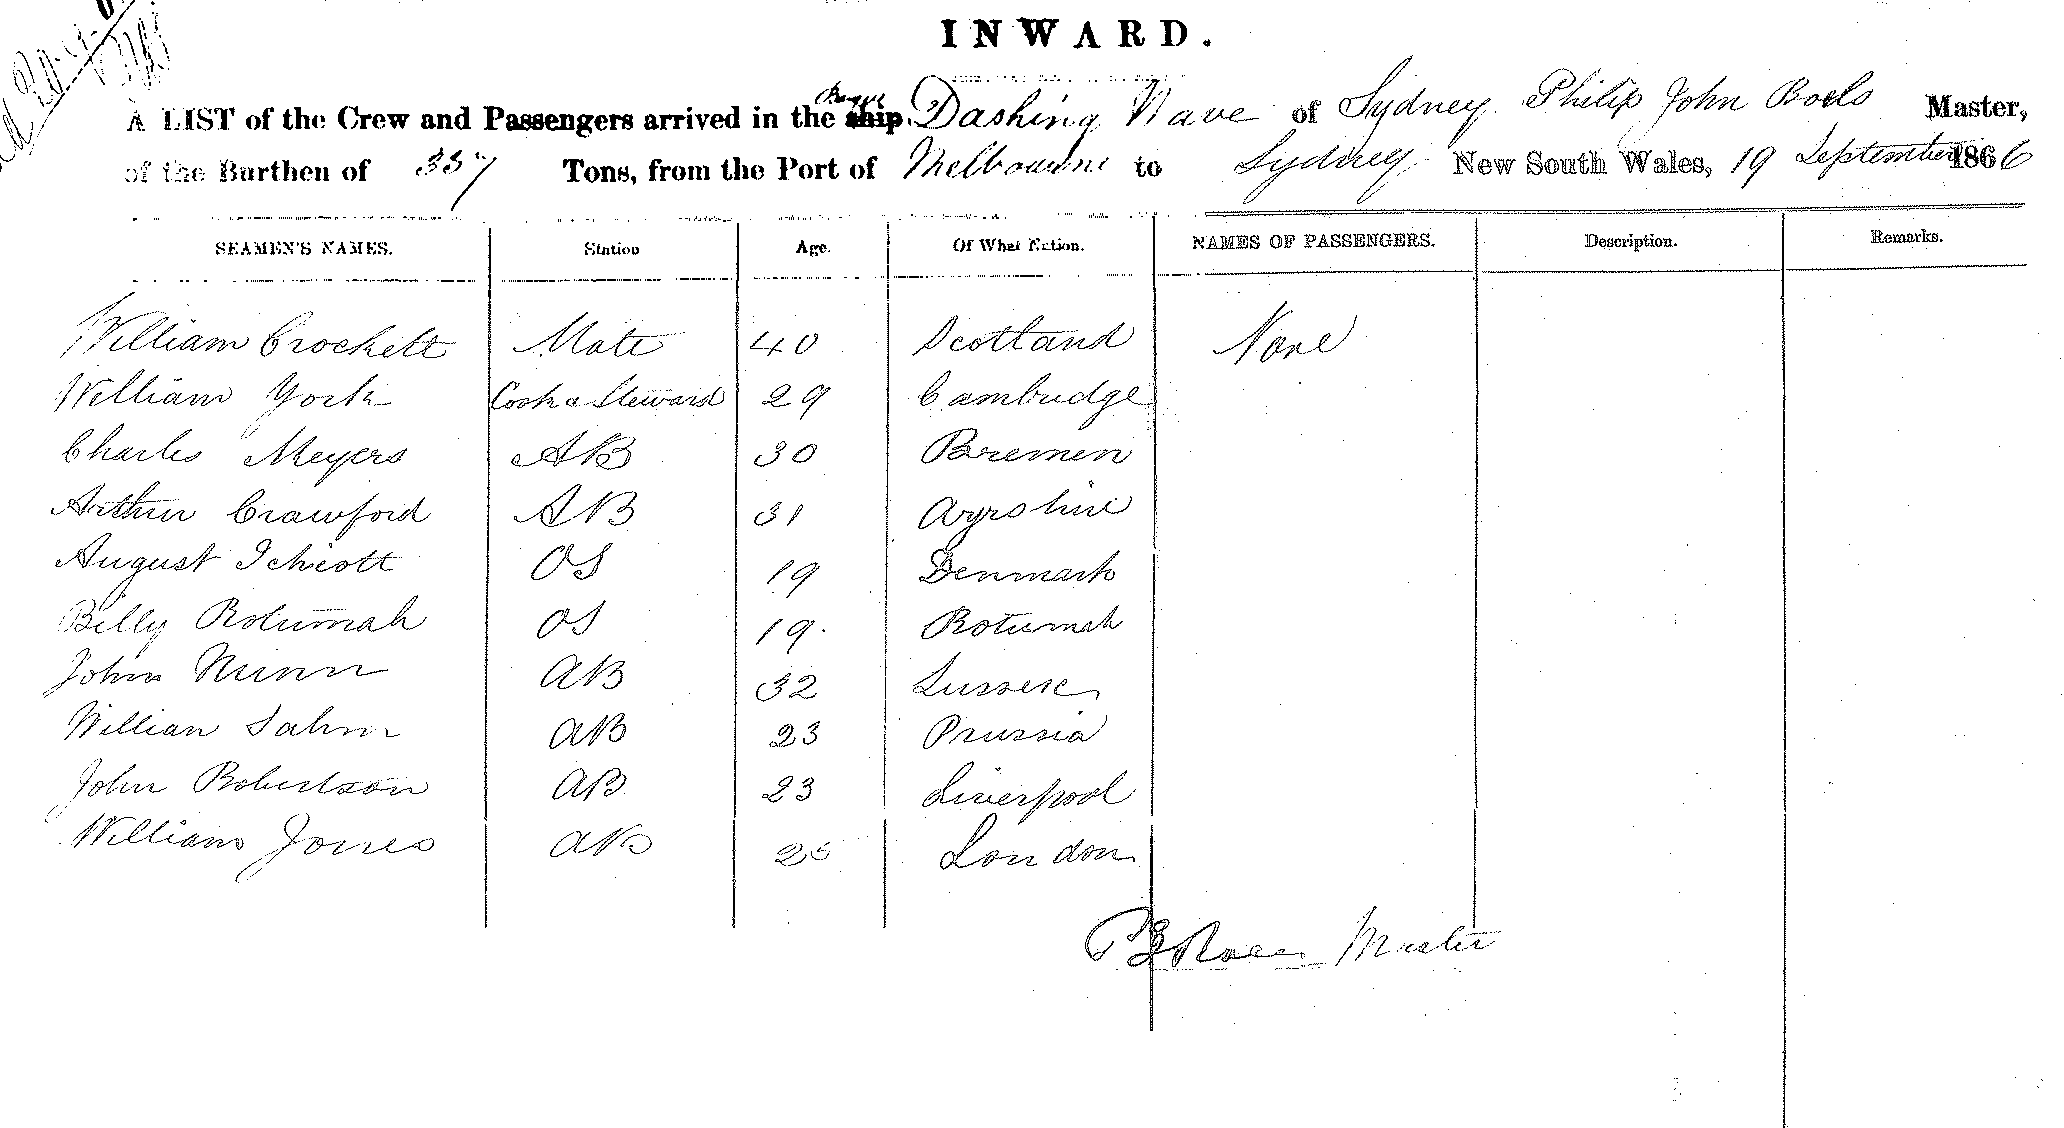 INWARD.
A LIST of the Crew and Passengers arrived in the ship Dashing Wave of Sydney Philip John Boels Master,
of the Burthen of 337 Tons, from the Port of Melbourne to Sydney New South Wales, 19 September 1866
SEAMEN'S NAMES. Station Age. Of What Nation. NAMES OF PASSENGERS. Description. Remarks.
William Crockett Mate 40 Scotland None
William York Cook & Steward 29 Cambridge
Charles Meyers AB 30 Bremen
Arthur Crawford AB 31 Ayrshire
August OS 19 Denmark
Billy Rotumah OS 19 Rotumah
John Nunn AB 32 Sussex
William Sahm AB 23 Prussia
John Robertson AB 23 Liverpool
William Jones AB London
Master